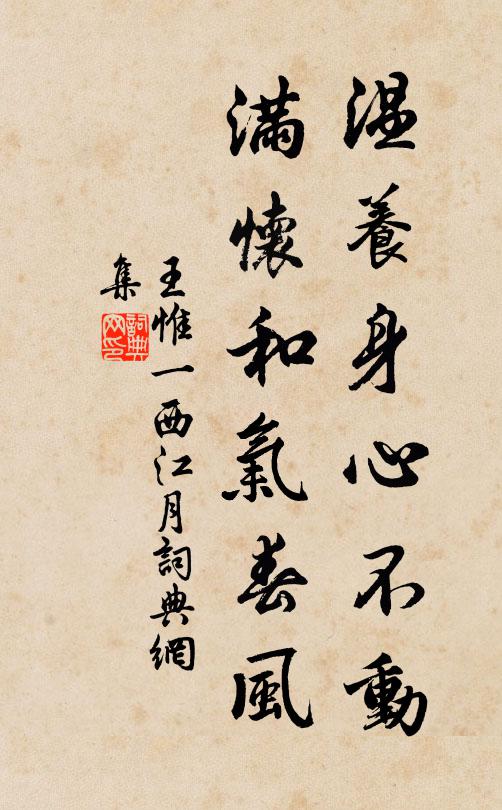 温養身心不動
滿懷和氣春風
王惟一西江月詞典網
集
詞典
网印